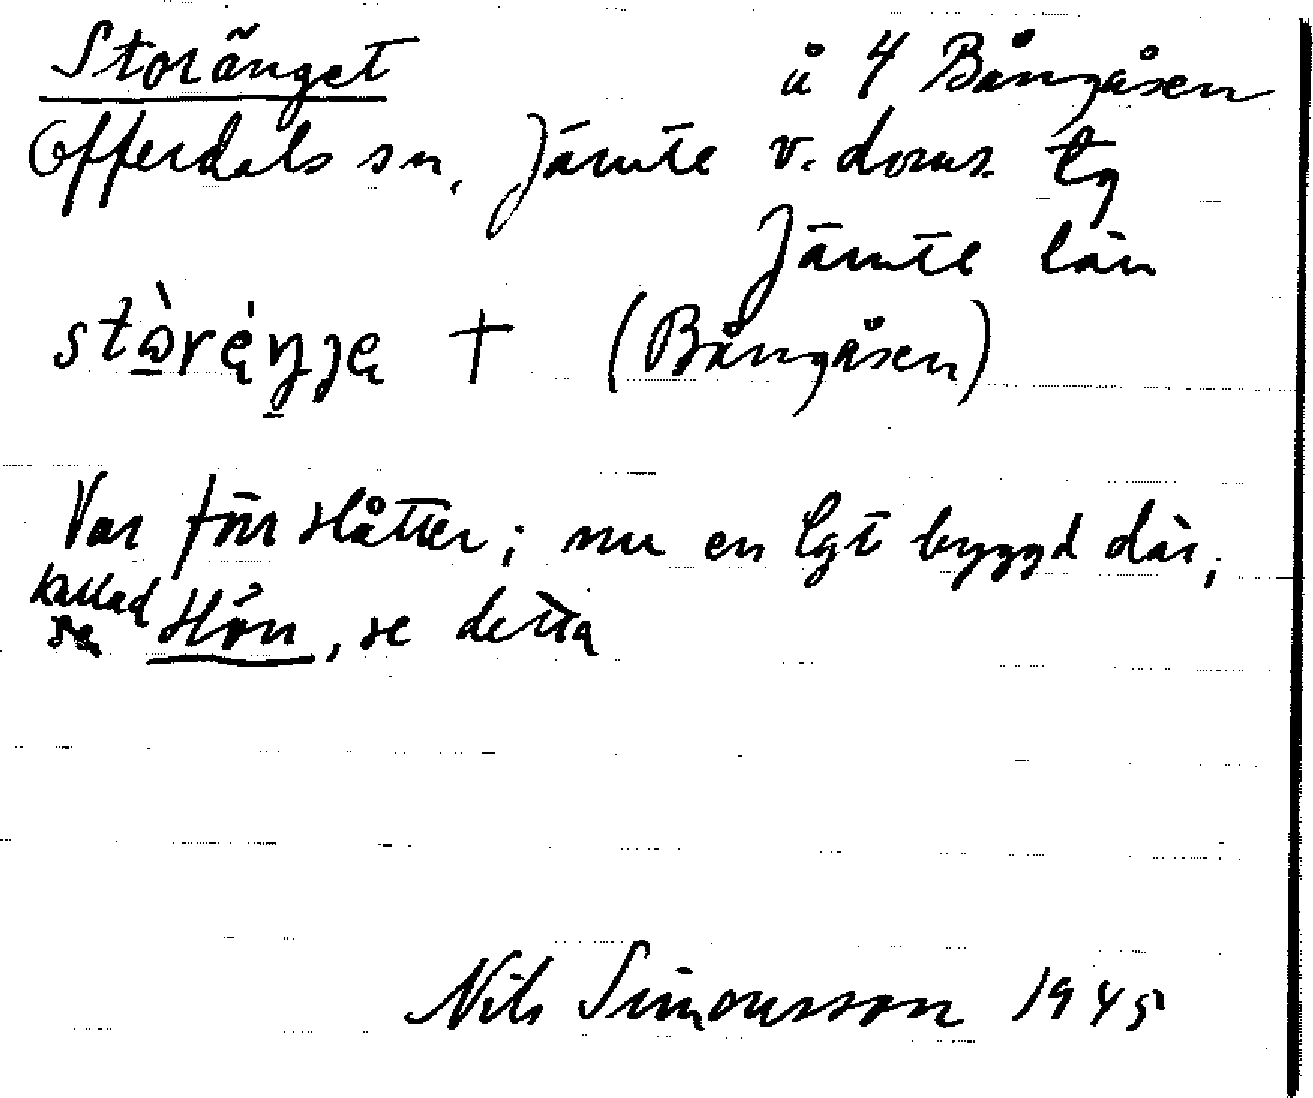 Storänget å 4 Bångåsen
Offerdals sn, Jämte v. doms. tg
Jämte län
(Bångåsen)
Var förr slåtter; nu en lgt byggd där,
kallad
Hån, se detta
Nils Simonsson 1945